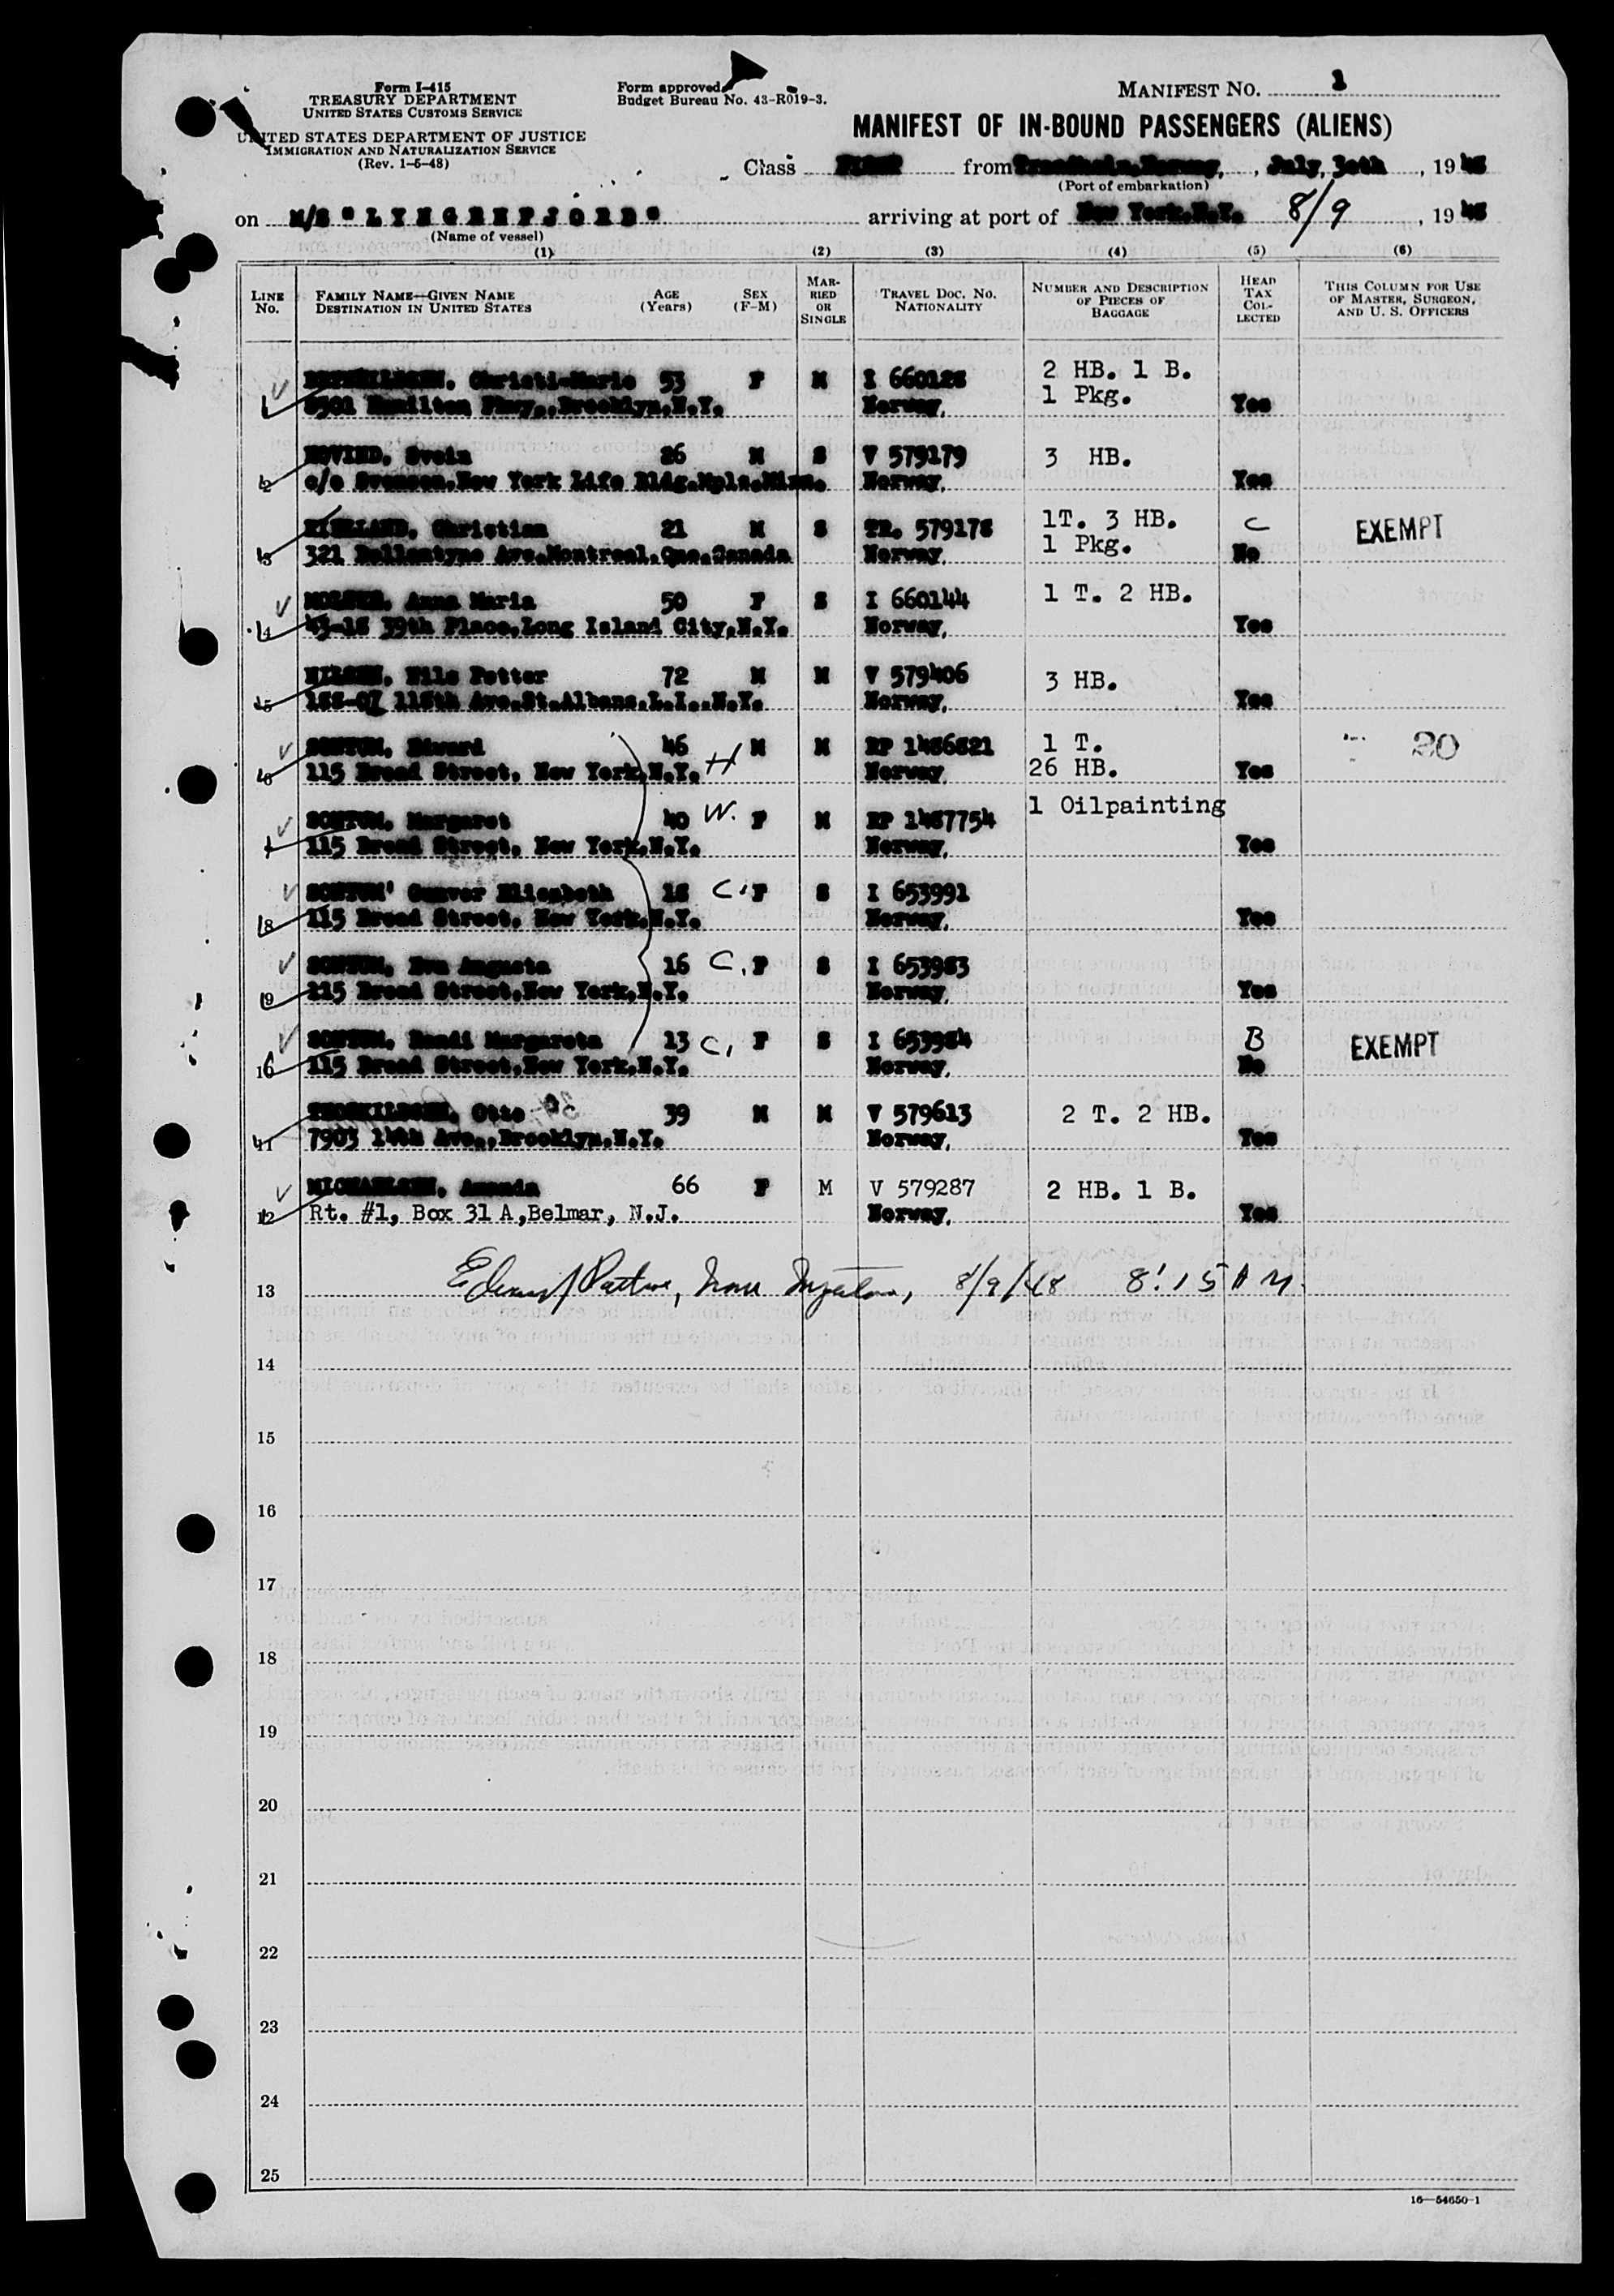 Form I-415
TREASURY DEPARTMENT
UNITED STATES CUSTOMS SERVICE
UNITED STATES DEPARTMENT OF JUSTICE
IMMIGRATION AND NATURALIZATION SERVICE
(Rev. 1-5-48)
Form approved.
Budget Bureau No. 43-R019-3.
MANIFEST NO. 1
MANIFEST OF IN-BOUND PASSENGERS (ALIENS)
Class FIRST from Trondheim, Norway, , July, 30th , 19 48
(Port of embarkation)
on M/S "LYNGENFJORD" arriving at port of New York.N.Y. 8/9 , 19 48
(Name of vessel)
(1) (2) (3) (4) (5) (6)
LINE No. FAMILY NAME—GIVEN NAME DESTINATION IN UNITED STATES AGE (Years) SEX (F-M) MARRIED OR SINGLE TRAVEL DOC. NO. NATIONALITY NUMBER AND DESCRIPTION OF PIECES OF BAGGAGE HEAD TAX COLLECTED THIS COLUMN FOR USE OF MASTER, SURGEON, AND U. S. OFFICERS
1 Christi-Marie 53 F M I 660128 2 HB. 1 B.
Hamilton Pkwy.,Brooklyn,N.Y. Norway, 1 Pkg. Yes
2 HOVIND, Svein 26 M S V 579179 3 HB.
c/o Svenson,New York Life Bldg.Mpls.Minn. Norway, Yes
3 Christian 21 M S TR. 579178 1T. 3 HB. C EXEMPT
321 Ballantyne Ave.Montreal.Que.Canada Norway, 1 Pkg. No
4 Anna Maria 50 F S I 660144 1 T. 2 HB.
43-18 39th Place,Long Island City,N.Y. Norway, Yes
5 NILSEN, Nils Petter 72 M M V 579406 3 HB.
188-07 118th Ave.St.Albans.L.I..N.Y. Norway, Yes
6 SONTUM, Edward 46 M M RP 1486821 1 T. 20
115 Broad Street, New York,N.Y. H Norway, 26 HB. Yes
7 SONTUM, Margaret 40 W. F M RP 1487754 1 Oilpainting
115 Broad Street, New York,N.Y. Norway, Yes
8 SONTUM' Gunver Elisabeth 18 C, F S I 653991
115 Broad Street, New York,N.Y. Norway, Yes
9 SONTUM, Eva Augusta 16 C, F S I 653983
115 Broad Street,New York,N.Y. Norway, Yes
10 SONTUM, Randi Margareta 13 C, F S I 653984 B EXEMPT
115 Broad Street,New York,N.Y. Norway, No
11 Otto 39 M M V 579613 2 T. 2 HB.
7903 14th Ave.,Brooklyn,N.Y. Norway, Yes
12 MICHAELSEN, Amanda 66 F M V 579287 2 HB. 1 B.
Rt. #1, Box 31 A,Belmar, N.J. Norway, Yes
13 8/9/48 8:15 AM.
14
15
16
17
18
19
20
21
22
23
24
25
16—54650-1